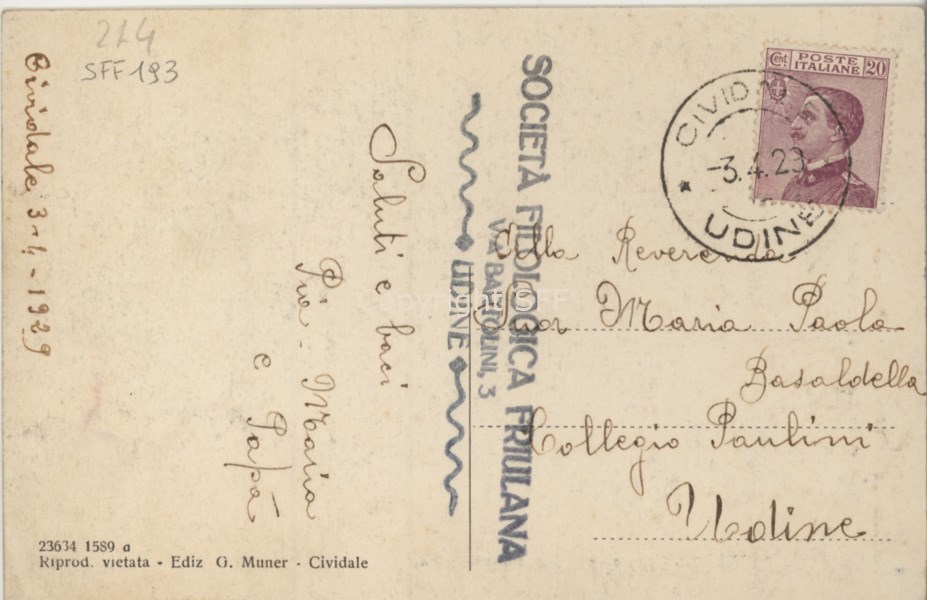 214
SFF 193
Cividale 3-4-1929
Saluti e baci
Pia - Maria
e Papà
SOCIETÀ FILOLOGICA FRIULANA
VIA BARTOLINI, 3
UDINE
Cent. POSTE ITALIANE 20
CIVIDA
-3.4.29
UDINE
Alla Reverenda
Suor Maria Paola
Basaldella
Collegio Paulini
Udine
copyright SFF
23634 1589 a
Riprod. vietata - Ediz G. Muner - Cividale